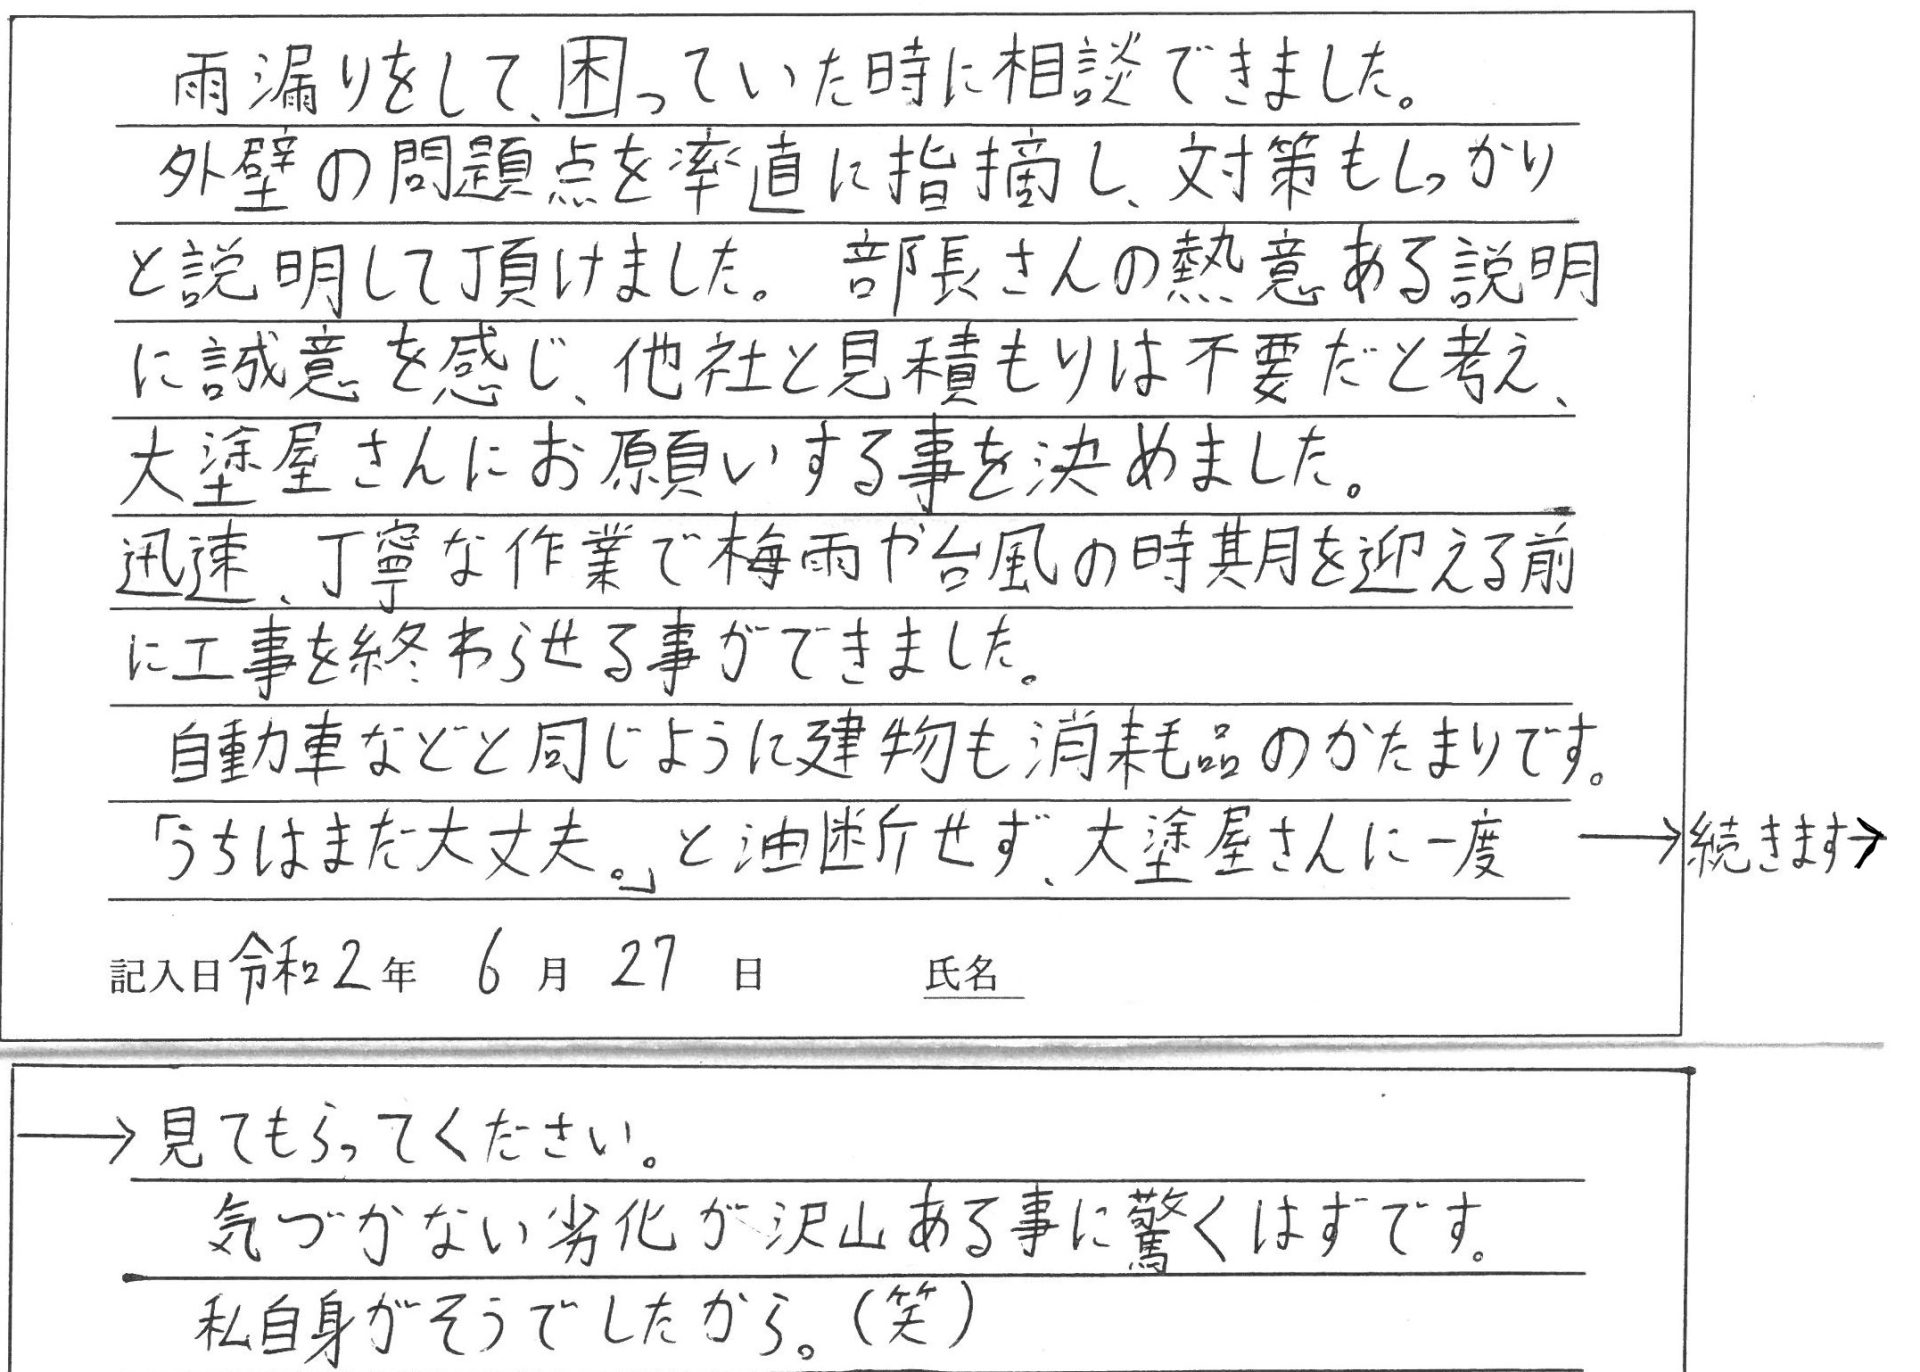 雨漏りをして、困っていた時に相談できました。
外壁の問題点を率直に指摘し、対策もしっかり
と説明して頂けました。 部長さんの熱意ある説明
に誠意を感じ、他社と見積もりは不要だと考え、
大塗屋さんにお願いする事を決めました。
迅速、丁寧な作業で梅雨や台風の時期を迎える前
に工事を終わらせる事ができました。
自動車などと同じように建物も消耗品のかたまりです。
「うちはまだ大丈夫。」と油断せず、大塗屋さんに一度 →続きます→
記入日 令和2年 6月 27日 氏名
→見てもらってください。
気づかない劣化が沢山ある事に驚くはずです。
私自身がそうでしたから。(笑)